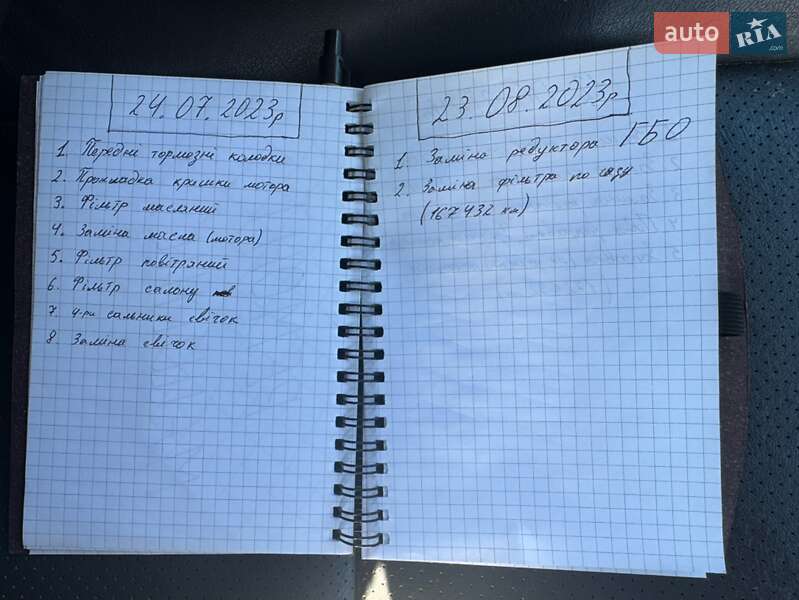 auto RIA .com
24.07.2023р
1. Передні тормозні колодки
2. Прокладка кришки мотора
3. Фільтр масляний
4. Заміна масла (мотора)
5. Фільтр повітряний
6. Фільтр салону
7. 4-ри сальники свічок
8. Заміна свічок
23.08.2023р
1. Заміна редуктора ГБО
2. Заміна фільтра по газу
(167432 км)